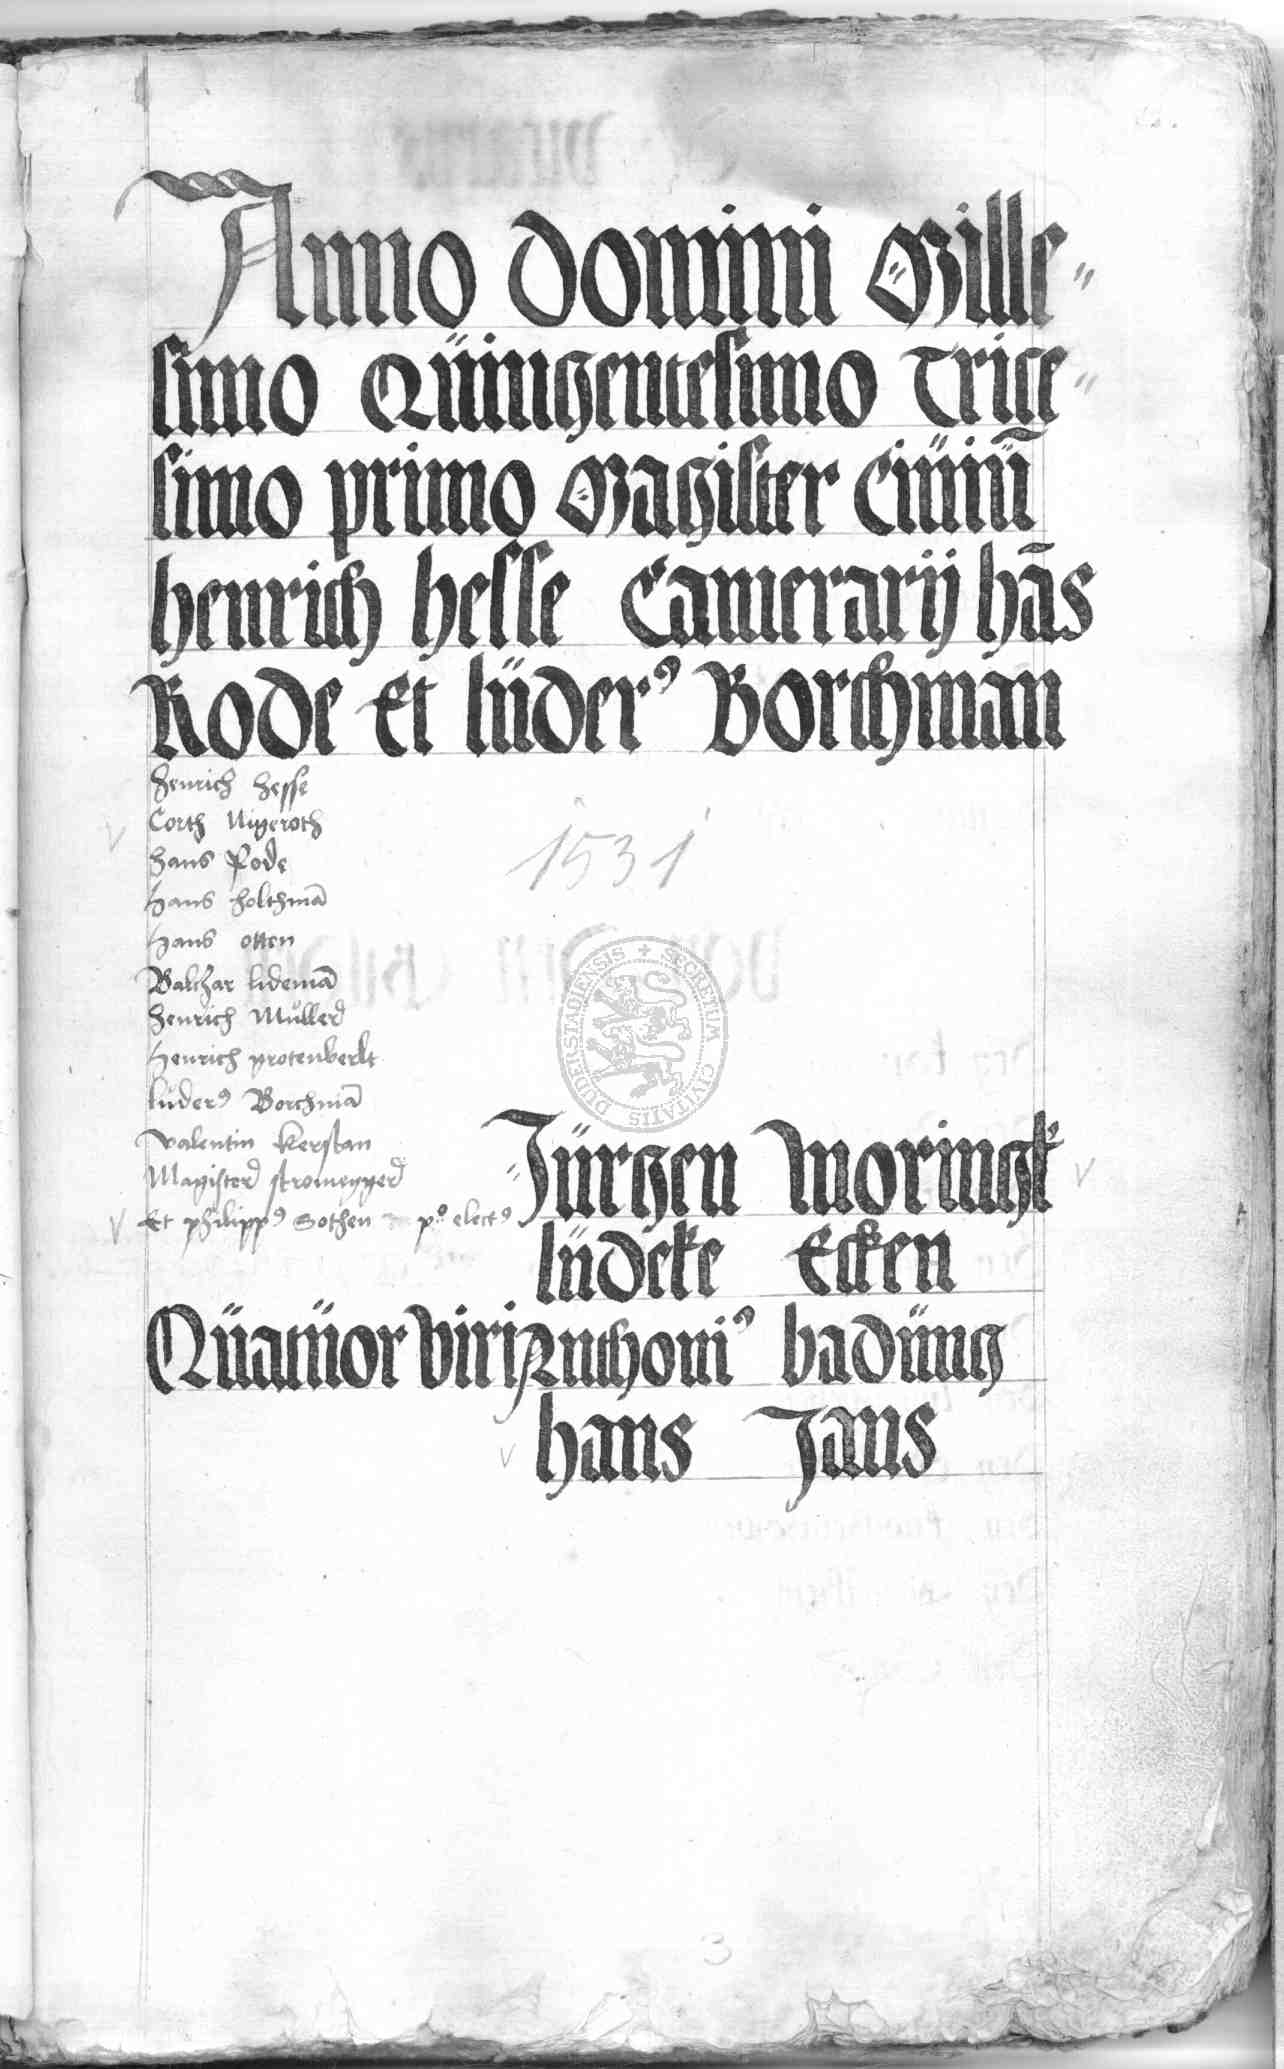 Anno Domini Mille„
simo Qüingentesimo Trice„
simo primo Magister Ciüiū
henrich hesse Camerarij hās
Rode Et lüderꝰ Borchman
henrich hesse
Corth Nigeroth
hans Rode
hans holthmā
hans otten
Baltzar lidemā
henrich Müller
henrich protenberlt
lüderꝰ Borchmā
valentin kerstan
Magister stromeyger
Et philippꝰ Sothen pꝰ electꝰ
1531
SECRETUM CIVITATIS DUDERSTADIENSIS
Jürgen Moringk
lüdeke Ecken
Qüatüor viri Anthoniꝰ badüng
hans Jans
3